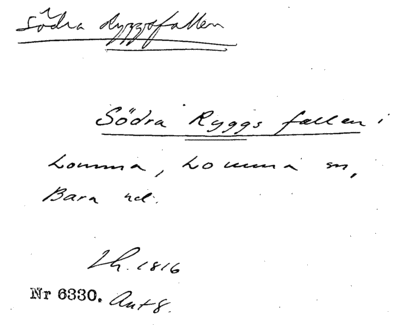 Södra Ryggsfallen
Södra Ryggs fallen i
Lomma, Lomma sn,
Bara hd.
Lh. 1816
Nr 6330. Akt 8.